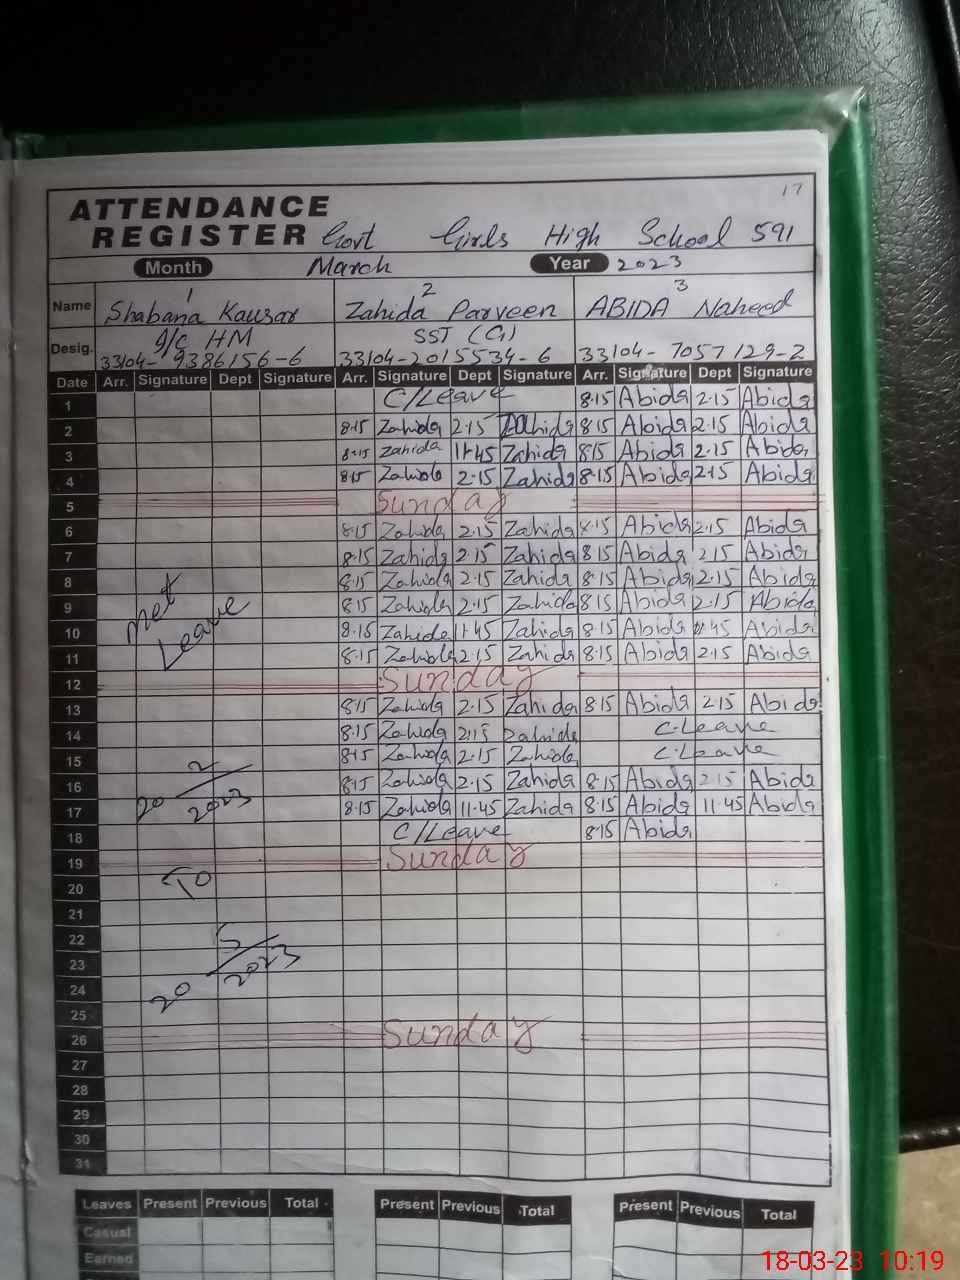 17
ATTENDANCE
REGISTER Govt Girls High School 591
Month March Year 2023
1 2 3
Name Shabana Kausar Zahida Parveen ABIDA Naheed
Desig. I/C HM SST (G)
33104-9386156-6 33104-2015534-6 33104-7057129-2
Date Arr. Signature Dept Signature Arr. Signature Dept Signature Arr. Signature Dept Signature
1 C/Leave 8·15 Abida 2·15 Abida
2 8·15 Zahida 2·15 Zahida 8·15 Abida 2·15 Abida
3 8·15 Zahida 11·45 Zahida 8·15 Abida 2·15 Abida
4 8·15 Zahida 2·15 Zahida 8·15 Abida 2·15 Abida
5 Sunday
6 8·15 Zahida 2·15 Zahida 8·15 Abida 2·15 Abida
7 8·15 Zahida 2·15 Zahida 8·15 Abida 2·15 Abida
8 8·15 Zahida 2·15 Zahida 8·15 Abida 2·15 Abida
9 met 8·15 Zahida 2·15 Zahida 8·15 Abida 2·15 Abida
10 Leave 8·15 Zahida 11·45 Zahida 8·15 Abida 11·45 Abida
11 8·15 Zahida 2·15 Zahida 8·15 Abida 2·15 Abida
12 Sunday
13 8·15 Zahida 2·15 Zahida 8·15 Abida 2·15 Abida
14 8·15 Zahida 2·15 Zahida C·Leave
15 8·15 Zahida 2·15 Zahida C·Leave
16 8·15 Zahida 2·15 Zahida 8·15 Abida 2·15 Abida
17 20 2/2023 8·15 Zahida 11·45 Zahida 8·15 Abida 11·45 Abida
18 C/Leave 8·15 Abida
19 Sunday
20 TO
21
22
23
24 20 5/2023
25
26 Sunday
27
28
29
30
31
Leaves Present Previous Total Present Previous Total Present Previous Total
Casual
Earned
18-03-23 10:19